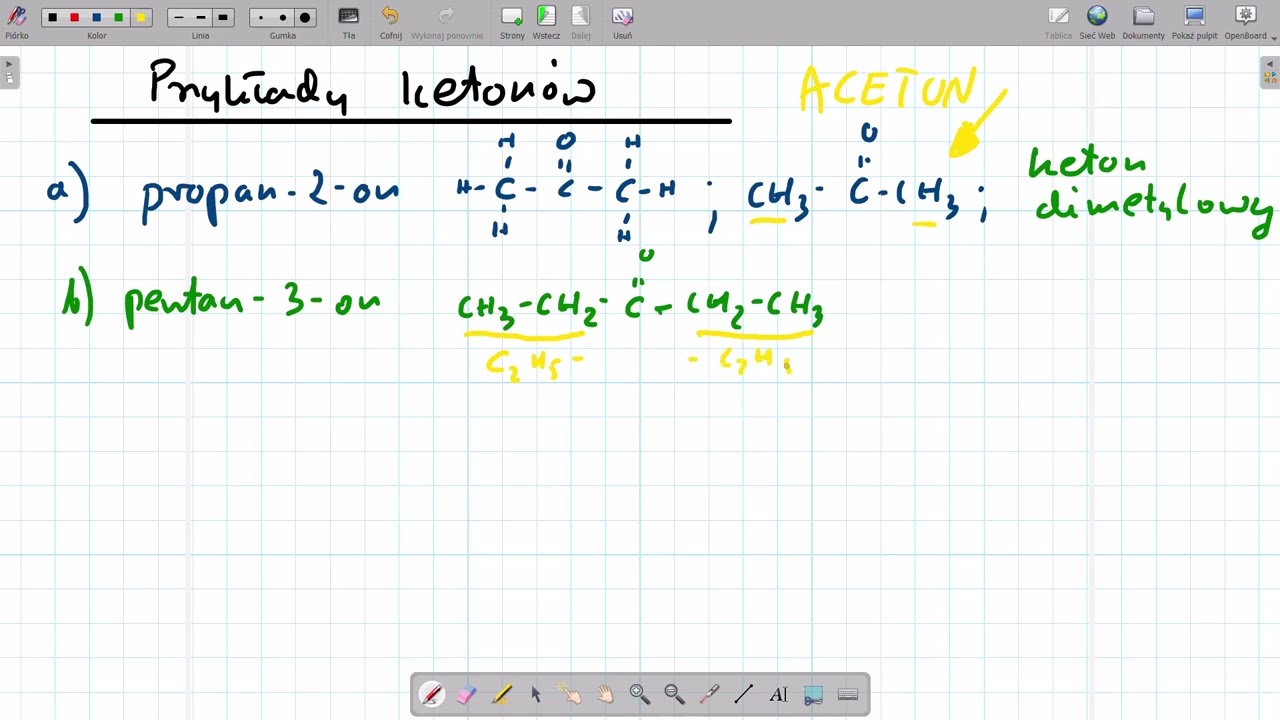 Piórko Kolor Linia Gumka Tła Cofnij Wykonaj ponownie Strony Wstecz Dalej Usuń Tablica Sieć Web Dokumenty Pokaż pulpit OpenBoard
Przykłady ketonów
ACETON
a) propan-2-on
H O H
H-C-C-C-H ;
H H
O
CH3-C-CH3 ;
keton
dimetylowy
b) pentan-3-on
O
CH3-CH2-C-CH2-CH3
C2H5- -C2H5
AI